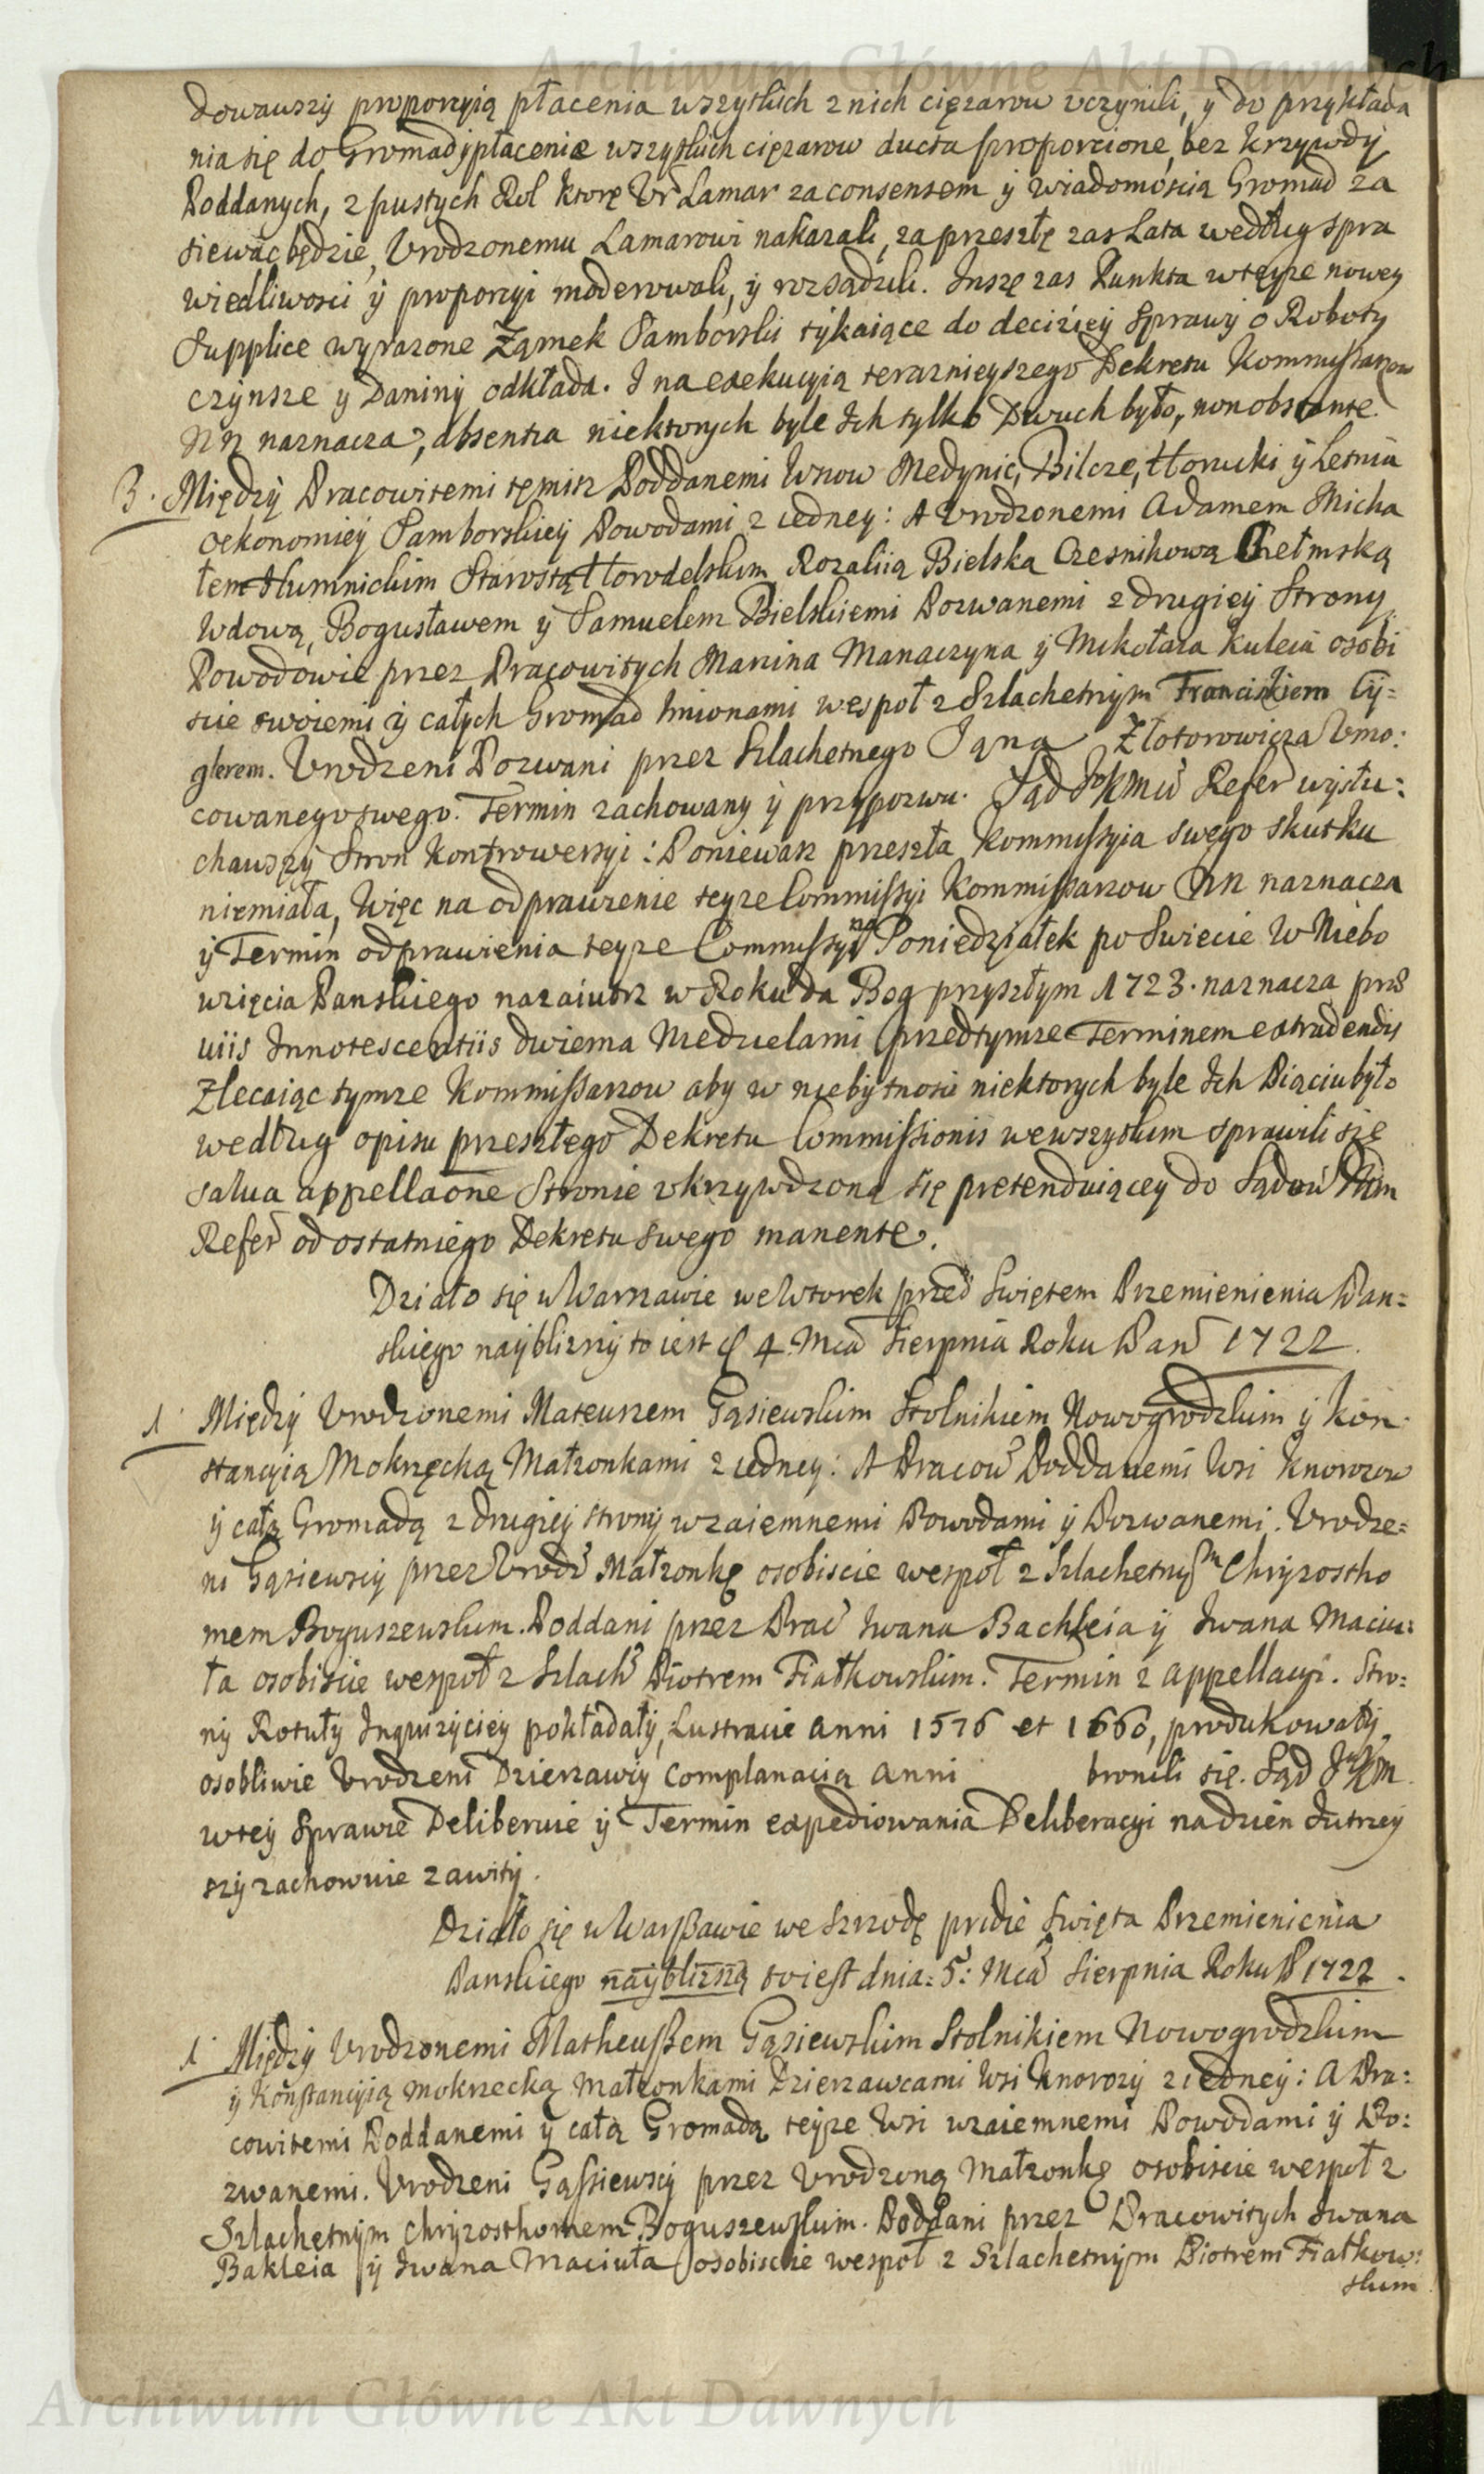 Archiwum Główne Akt Dawnych
dowawszy proporcyią płacenia wszytkich z nich cięzarow uczynili, y do przykłada
nia się do Gromad y płacenie wszytkich cięzarow ducta proporcione, bez krzywdy
Poddanych, z pustych Rol ktorę Ur Lamar za consensem y wiadomoscią Gromad za
siewac będzie, Urodzonemu Lamarowi nakazali, za przeszłę zas Lata według spra
wiedliwosci y proporcyi moderowali, y rozsądzili. Inszę zas Punkta w teyze nowey
Supplice wyrazone Zamek Samborski tykaiące do deciziey Sprawy o Roboty
czynsze y Daniny odkłada. I na exekucyią teraznieyszego Dekretu Kommissarzow
NN naznacza, absentia niektorych byle Ich tylko Dwuch było, non obstante.
3. Między Pracowitemi tęmisz Poddanemi Wsiow Medynic, Bilcze, Horucki y Letnia
Oekonomiey Samborskiey Powodami z iedney: A Urodzonemi Adamem Micha
łem Humnickim Starostą Horodelskim, Rozalią Bielska Czesnikową Chełmską
Wdową, Bogusławem y Samuelem Bielskiemi Pozwanemi z drugiey Strony
Powodowie przez Pracowitych Marcina Manaczyna y Mikołaia Kuleia osobi
scie swoiemi y całych Gromad Imionami wespoł z Szlachetnym Franciszkiem Cy=
glerem. Urodzeni Pozwani przez Szlachetnego Jana Złotorowicza Umo:
cowanego swego. Termin zachowany y przypozwu. Sąd JoKMci Refer wysłu:
chawszy Stron Kontrowersyi: Poniewasz przeszła Kommissyia swego skutku
niemiała, Więc na odprawienie teyze Commissyi Kommissarzow NN naznacza
y Termin odprawienia teyze Commissyi na Poniedziałek po Swiecie W Niebo
wzięcia Panskiego nazaiutrz w Roku da Bog przyszłym 1723. naznacza præ
uiis Innotescentiis dwiema Niedzielami przed tymze Terminem extradendis
Zlecaiąc tymze Kommissarzow aby w niebytnosci niektorych byle Ich Piąciu było
według opisu przeszłego Dekretu Commissionis we wszystkim sprawili się
salua appellaōne Stronie ukrzywdzoną się pretenduiącey do Sądow
Refer od ostatniego Dekretu swego manente.
Działo się w Warszawie we Wtorek przed Swiętem Przemienienia Pan=
skiego nayblizszy to iest d 4. Mca Sierpnia Roku Pan 1722.
1 Między Urodzonemi Mateuszem Gąsiewskim Stolnikiem Nowogrodzkim y Kon
stancyią Mokrzęcką Małzonkami z iedney: A Pracow Poddanemi Wsi Knorozow
y całą Gromadą z drugiey strony wzaiemnemi Powodami y Pozwanemi. Urodze=
ni Gąsiewscy przez Urodz Małzonkę osobiscie wespoł z Szlachetnym Chryzostho
mem Boguszewskim. Poddani przez Prac Iwana Bachleia y Iwana Maciu:
ła osobiscie wespoł z Szlach Piotrem Fiałkowskim. Termin z appellacyi. Stro:
ny Rotuły Inquizyciey pokładały, Lustracie Anni 1576 et 1660, produkowały,
osobliwie Urodzeni Dzierzawcy Complanacią Anni bronili się. Sąd JoKM
w tey Sprawie Deliberuie y Termin expediowania Deliberacyi na dzien Iutrzey
szy zachowuie zawity.
Działo się w Warszawie we Szrzodę pridie Swięta Przemienienia
Panskiego nayblizszą to iest dnia: 5: Mca Sierpnia Roku P 1722.
1 Między Urodzonemi Matheuszem Gąsiewskim Stolnikiem Nowogrodzkim
y Konstancyią Mokrzecką Małzonkami Dzierzawcami Wsi Knorozy z iedney: A Pra:
cowitemi Poddanemi y całą Gromadą teyze Wsi wzaiemnemi Powodami y Po:
zwanemi. Urodzeni Gąssiewscy przez Urodzoną Małzonkę osobiscie wespoł z
Szlachetnym Chryzosthomem Boguszewskim. Poddani przez Pracowitych Iwana
Bakleia y Iwana Maciuła osobiscie wespoł z Szlachetnym Piotrem Fiałkow:
skim
Archiwum Główne Akt Dawnych